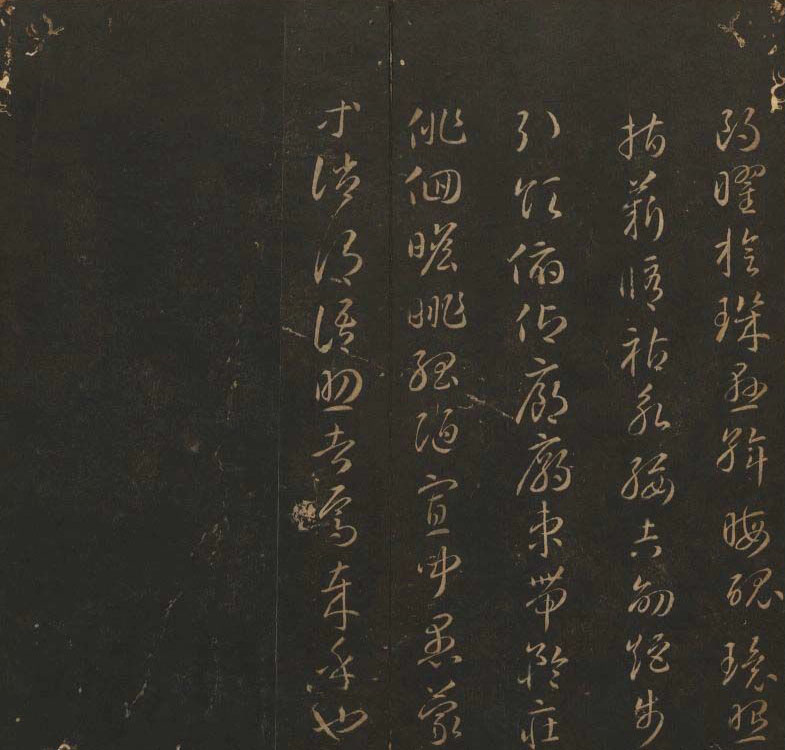 朗曜旋璣懸斡晦魄環照
指薪修祜永綏吉劭矩步
引領俯仰廊廟束帶矜莊
徘徊瞻眺孤陋寡聞愚蒙
等誚謂語助者焉哉乎也